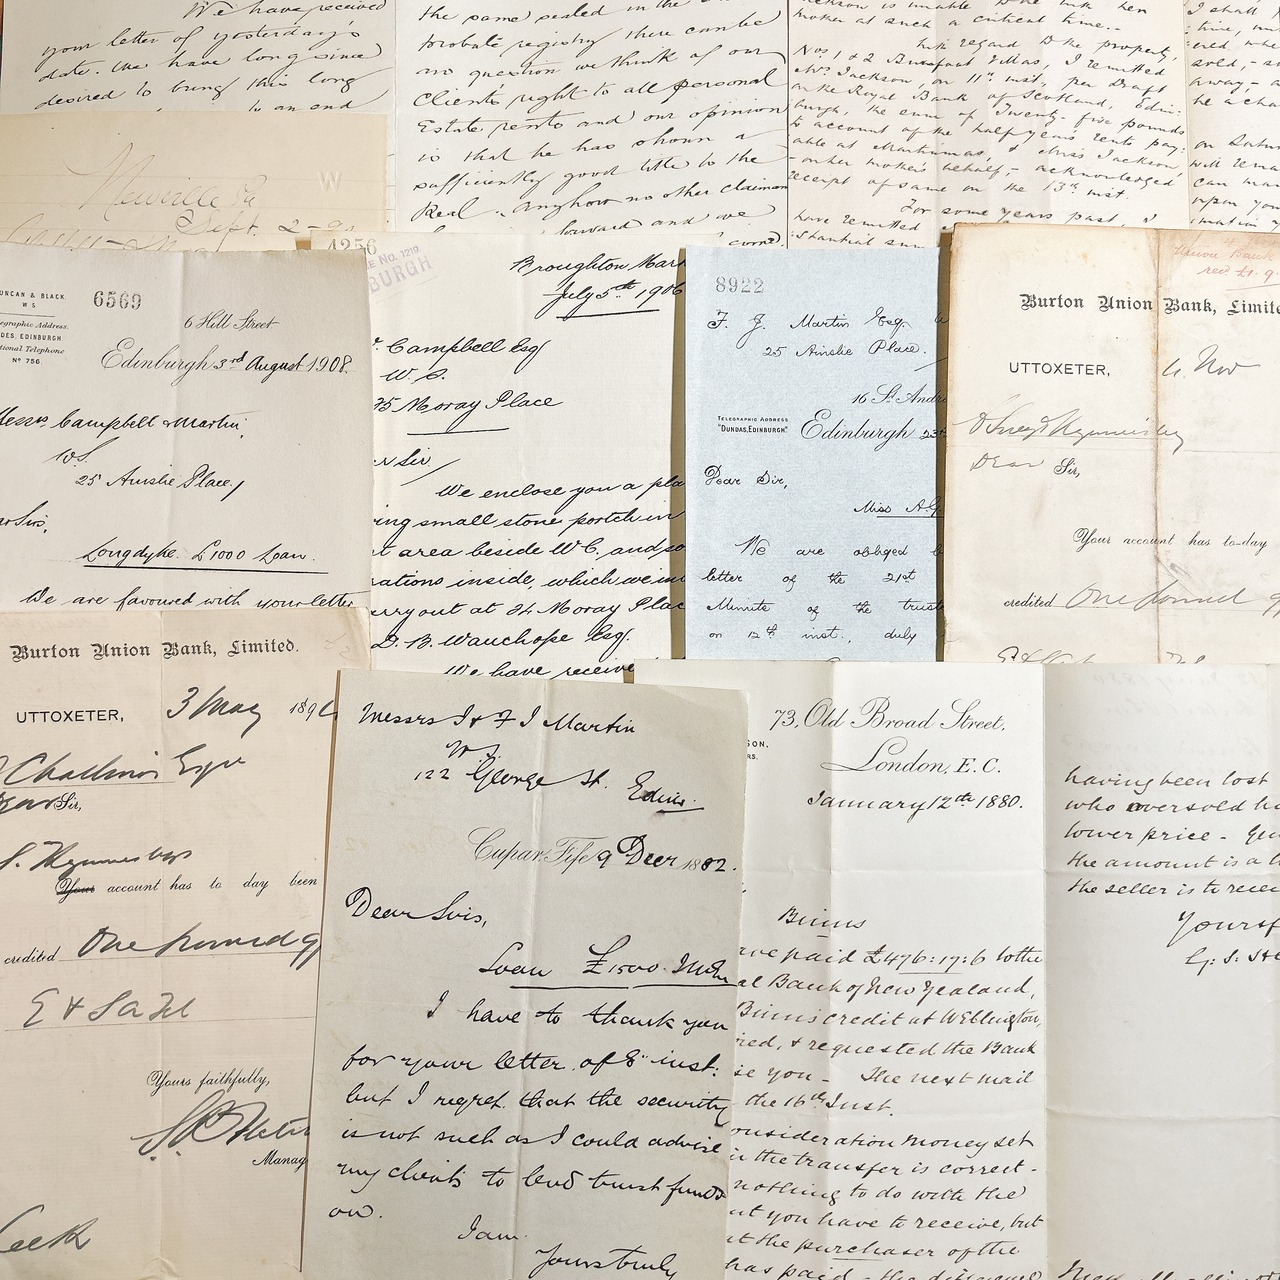 We have received
your letter of yesterday's
date. We have long since
desired to bring this long
to an end
the same sealed in the
Probate registry there can be
no question we think of our
Client's right to all personal
Estate rents and our opinion
is that he has shown a
sufficiently good title to the
Real. Anyhow no other claimant
forward and we
is unable to
mother at such a critical time.
With regard to the property,
Nos. 1 & 2 Villas, I remitted
Mrs Jackson, on 11th inst, per Draft
on the Royal Bank of Scotland, Edin-
burgh, the sum of Twenty-five pounds
to account of the half year's rents pay-
able at Martinmas, & Miss Jackson,
on her mother's behalf, acknowledged
receipt of same on the 13th inst.
For some years past, I
have remitted
I shall
time,
sold,
away,
be a cha
on Satur
will rema
can ma
upon you
Newville Pa
Sept. 2
W
DUNCAN & BLACK.
W S.
6569
egraphic Address.
DES, EDINBURGH
tional Telephone
No 756
6 Hill Street
Edinburgh 3rd August 1908.
Messrs Campbell & Martin,
W.S.
25 Ainslie Place,
ar Sirs,
Longdyke. £1000 Loan.
We are favoured with your letter
4256
e No. 1219.
BURGH
Broughton Mark
July 5th 1906
Campbell Esq
W. S.
25 Moray Place
r Sir/
We enclose you a pla
ing small stone porch in
t area beside W.C. and so
rations inside, which we in
carry out at 24 Moray Plac
D. B. Wauchope Esq.
We have receive
8922
F. J. Martin Esq. W
25 Ainslie Place.
16 St. Andr
TELEGRAPHIC ADDRESS
"DUNDAS, EDINBURGH"
Edinburgh 23rd
Dear Sir,
Miss A.G.
We are obliged
letter of the 21st
Minute of the truste
on 12th inst., duly
Union Bank
rec
Burton Union Bank, Limite
UTTOXETER, 4 Nov
Dear Sir,
Your account has to-day
credited One pound
Burton Union Bank, Limited.
UTTOXETER, 3 May 189
Challinor Esqr
Dear Sir,
Your account has to day been
credited One pound
Yours faithfully,
Manag
Leek
Messrs J & F J Martin
W.S.
122 George St. Edinr.
Cupar-Fife 9 Decr 1882.
Dear Sirs,
Loan £1500.
I have to thank you
for your letter of 8th inst:
but I regret that the security
is not such as I could advise
my clients to lend trust funds
on.
I am
Yours truly
SON,
RS.
73, Old Broad Street,
London, E. C.
January 12th 1880.
Binns
ave paid £476:17:6 to the
al Bank of New Zealand,
Binns credit at Wellington,
ired, & requested the Bank
se you - The next mail
the 16th Inst.
onsideration money set
in the transfer is correct -
nothing to do with the
nt you have to receive, but
t the purchaser of the
has paid - the
having been lost
who oversold h
lower price -
the amount is a
the seller is to rece
Yours f
G. S.